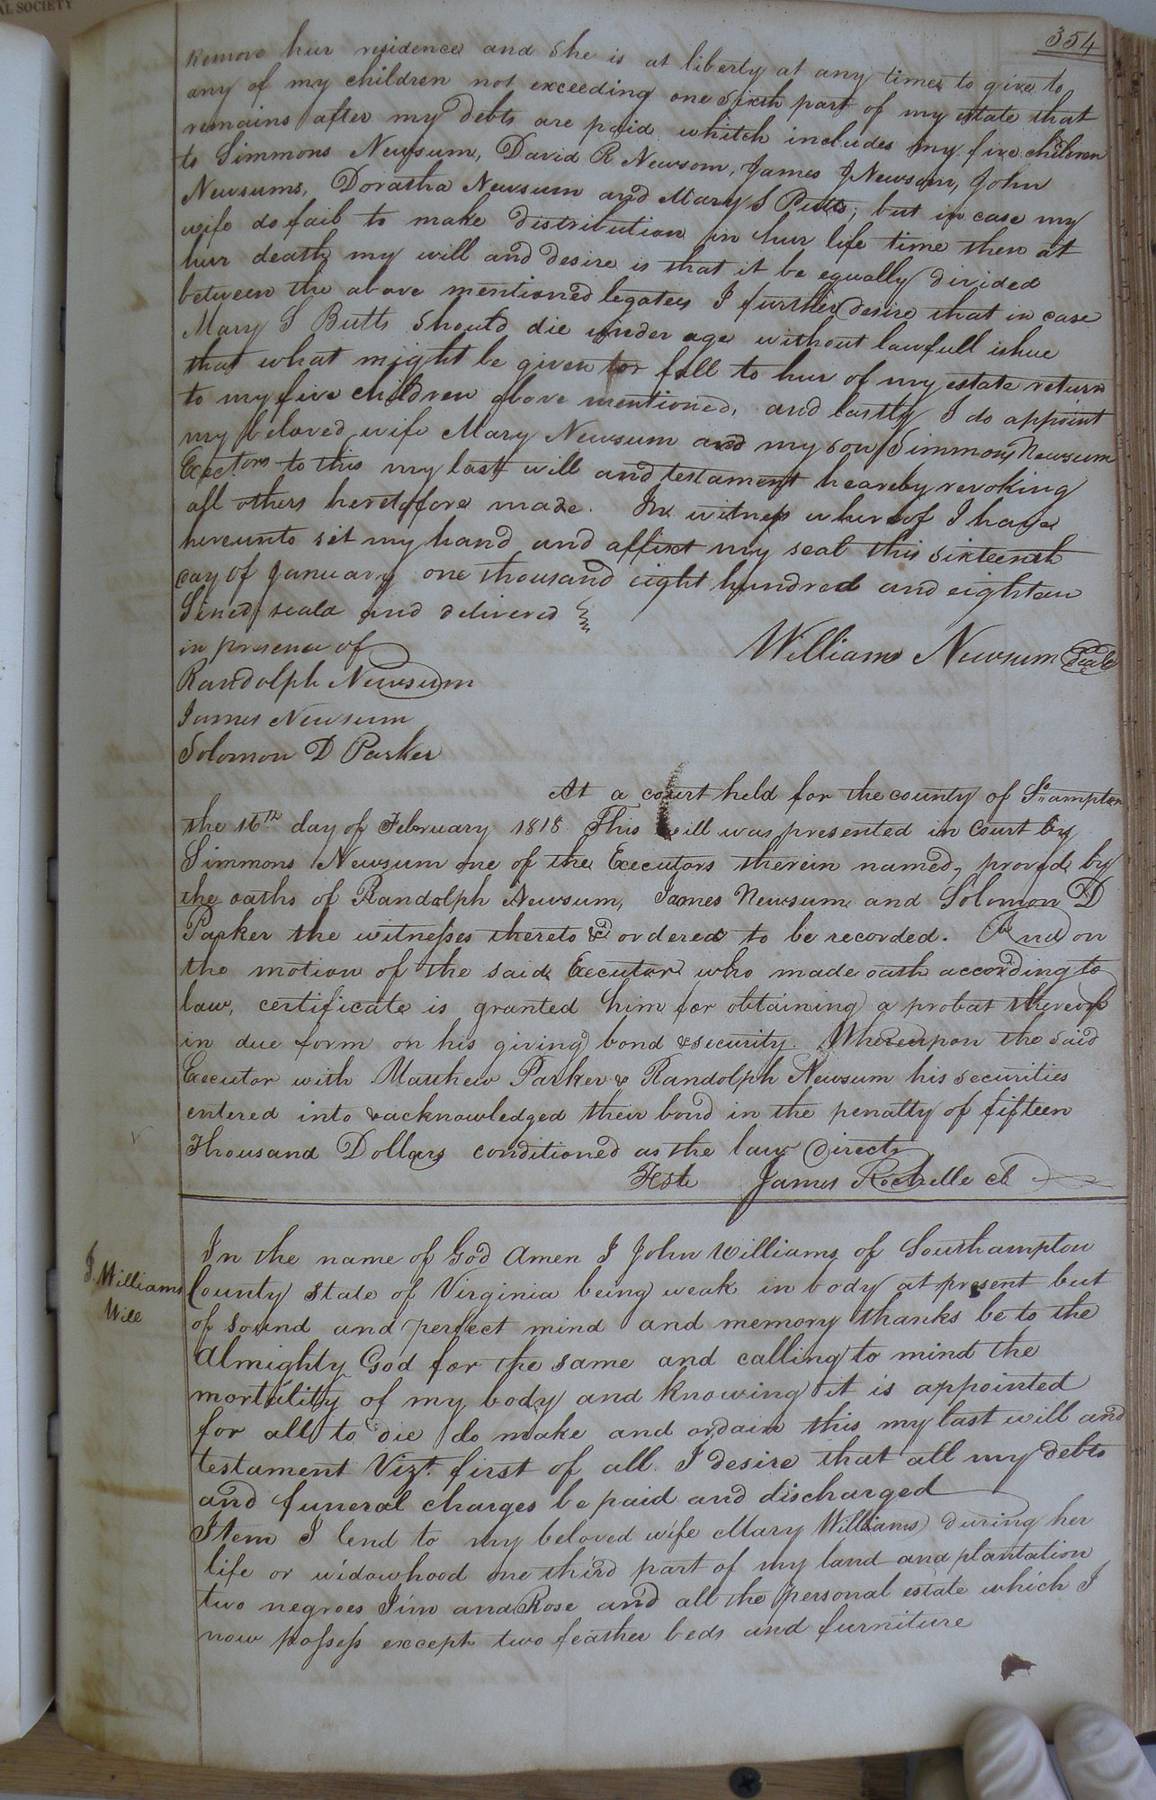 AL SOCIETY
354
Remove hur residence and she is at liberty at any times to give to
any of my children not exceeding one sixth part of my estate that
remains after my debts are paid whitch includes my five children
to Simmons Newsum, David R Newsom, James J Newsom, John
Newsums, Doratha Newsum and Mary S Butts, but in case my
wife do fail to make distribution in hur life time then at
hur death my will and desire is that it be equally divided
between the above mentioned legatees I further desire that in case
Mary S Butts should die under age without lawfull ishue
that what might be given or fall to hur of my estate return
to my five children above mentioned, and lastly I do appoint
my beloved wife Mary Newsum and my son Simmons Newsum
Exectors to this my last will and testament heareby revoking
all others heretofore made. In witness whereof I have
hereunto set my hand and affixt my seal this sixteenth
day of January one thousand eight hundred and eighteen
Sined seald and delivered
in presence of
Williams Newsum Seal
Randolph Newsum
James Newsum
Solomon D Parker
At a court held for the county of So.ampton
the 16th day of February 1818 This will was presented in Court by
Simmons Newsum one of the Executors therein named, proved by
the oaths of Randolph Newsum, James Newsum and Solomon D
Parker the witnesses thereto & ordered to be recorded. And on
the motion of the said Executor who made oath according to
law, certificate is granted him for obtaining a probat thereof
in due form on his giving bond & security. Whereupon the said
Executor with Matthew Parker & Randolph Newsum his securities
entered into & acknowledged their bond in the penalty of fifteen
Thousand Dollars conditioned as the law directs
Teste James Rochelle cl
J. Williams
Will
In the name of God Amen I John Williams of Southampton
County State of Virginia being weak in body at present but
of sound and perfect mind and memory thanks be to the
Almighty God for the same and calling to mind the
mortility of my body and knowing it is appointed
for all to die do make and ordain this my last will and
testament Vizt. first of all I desire that all my debts
and funeral charges be paid and discharged
Item I lend to my beloved wife Mary Williams during her
life or widowhood one third part of my land and plantation
two negroes Jim and Rose and all the personal estate which I
now possess except two feather beds and furniture